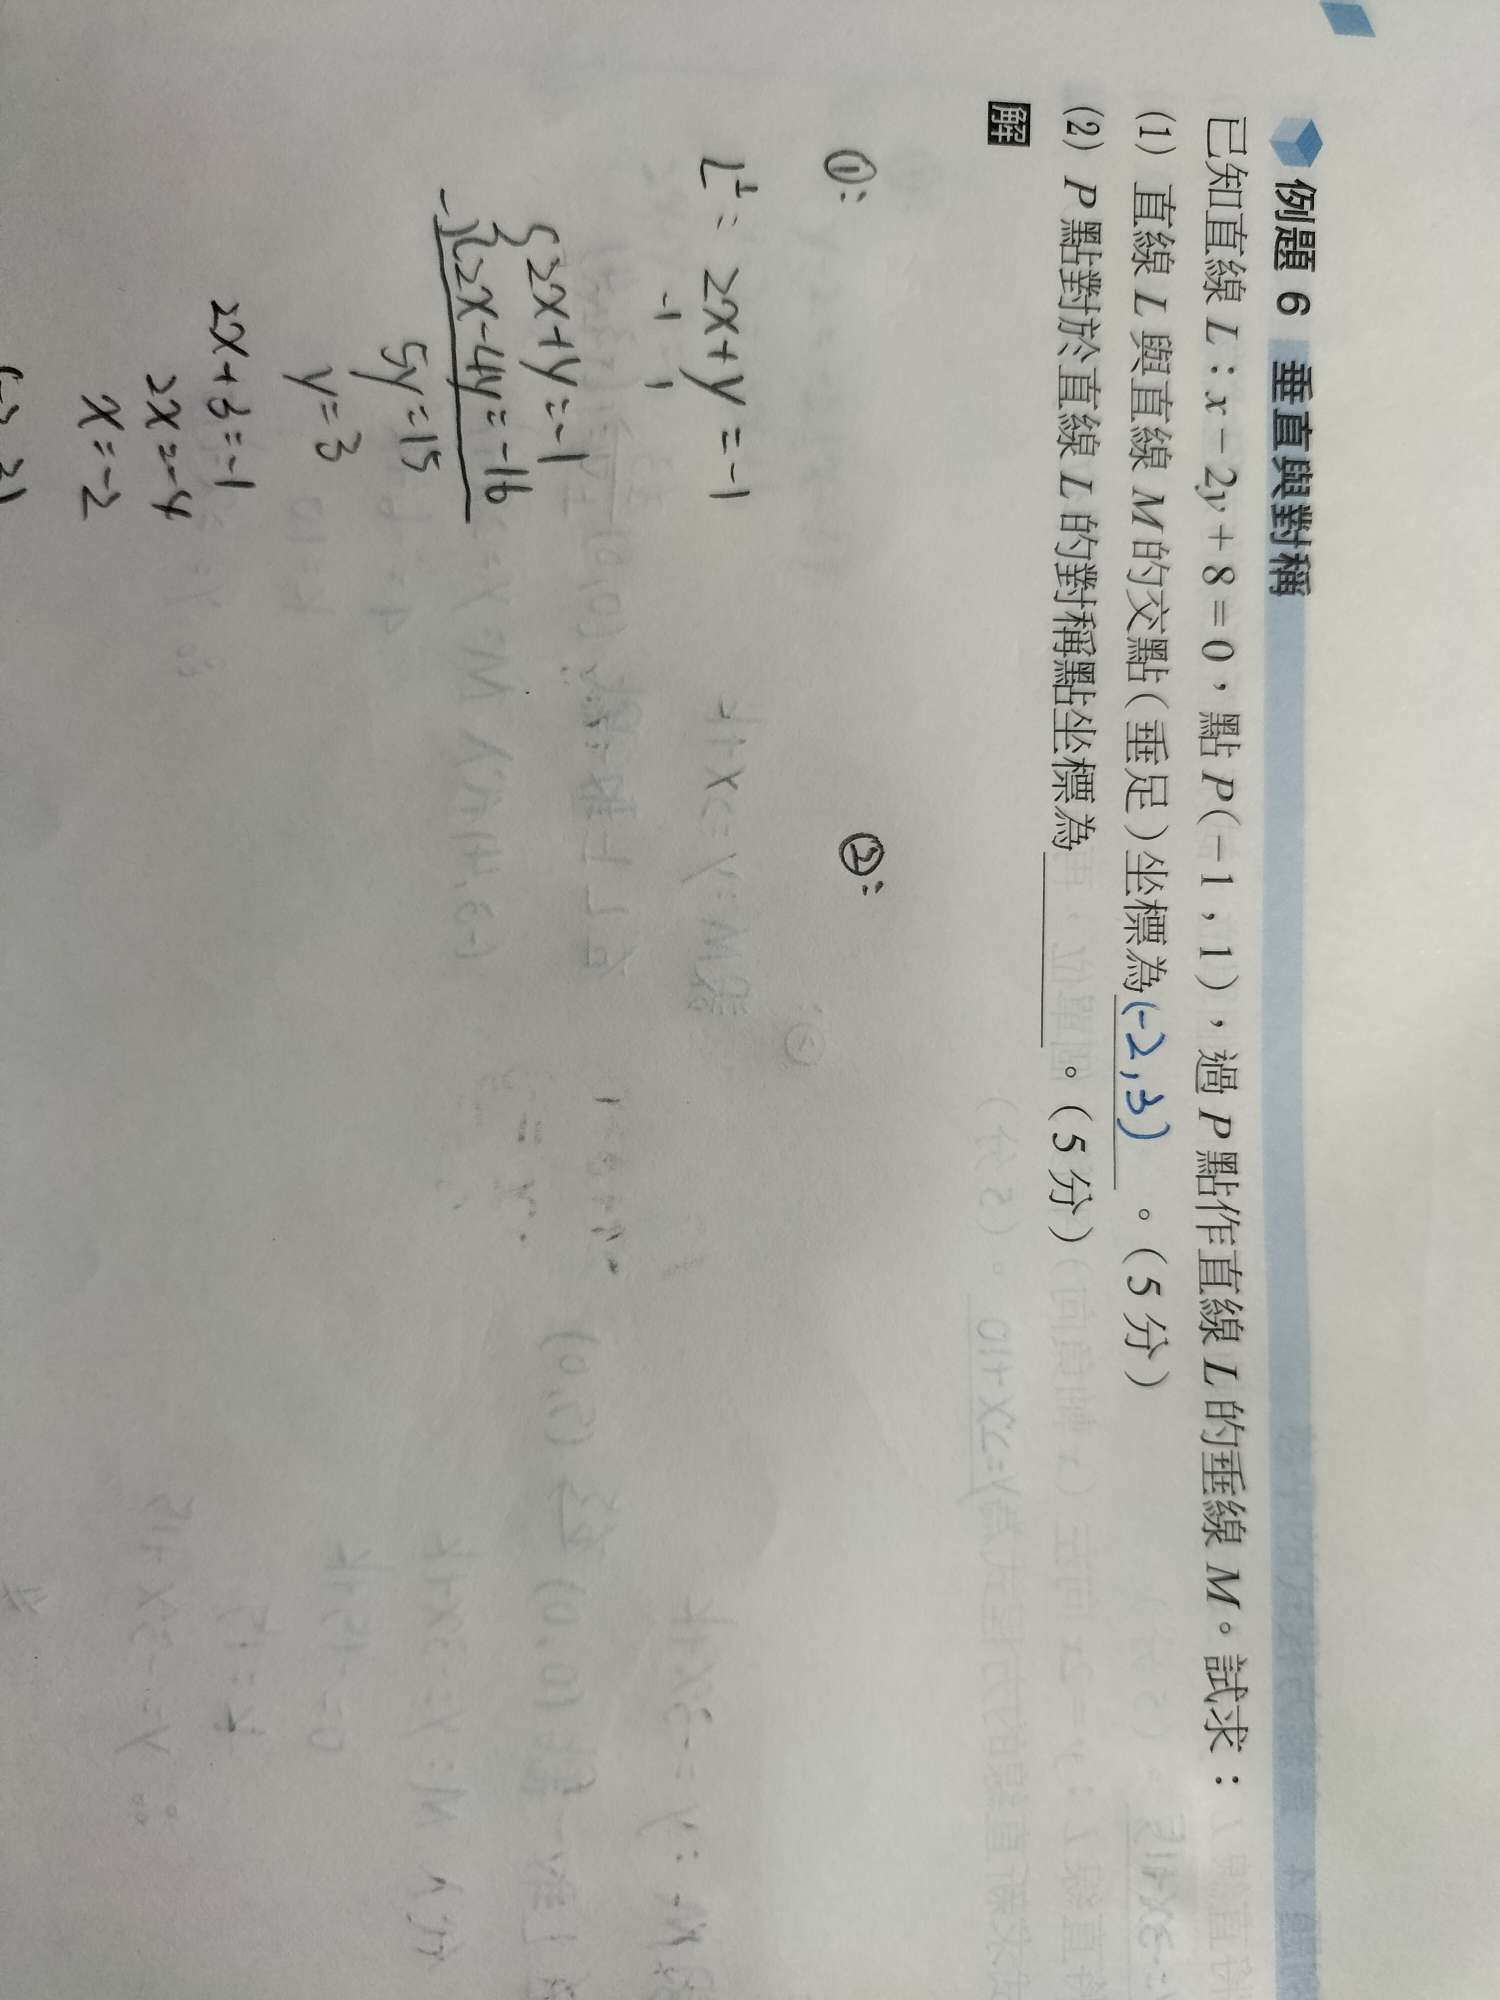 例題 6 垂直與對稱
已知直線 L：x－2y＋8＝0，點 P(－1，1)，過 P 點作直線 L 的垂線 M。試求：
(1) 直線 L 與直線 M 的交點(垂足)坐標為(-2,3)。(5分)
(2) P 點對於直線 L 的對稱點坐標為＿＿＿＿。(5分)
解
①:
②:
L⊥: 2x+y=-1
-1 1
2x+y=-1
-) 2x-4y=-16
5y=15
y=3
2x+3=-1
2x=-4
x=-2